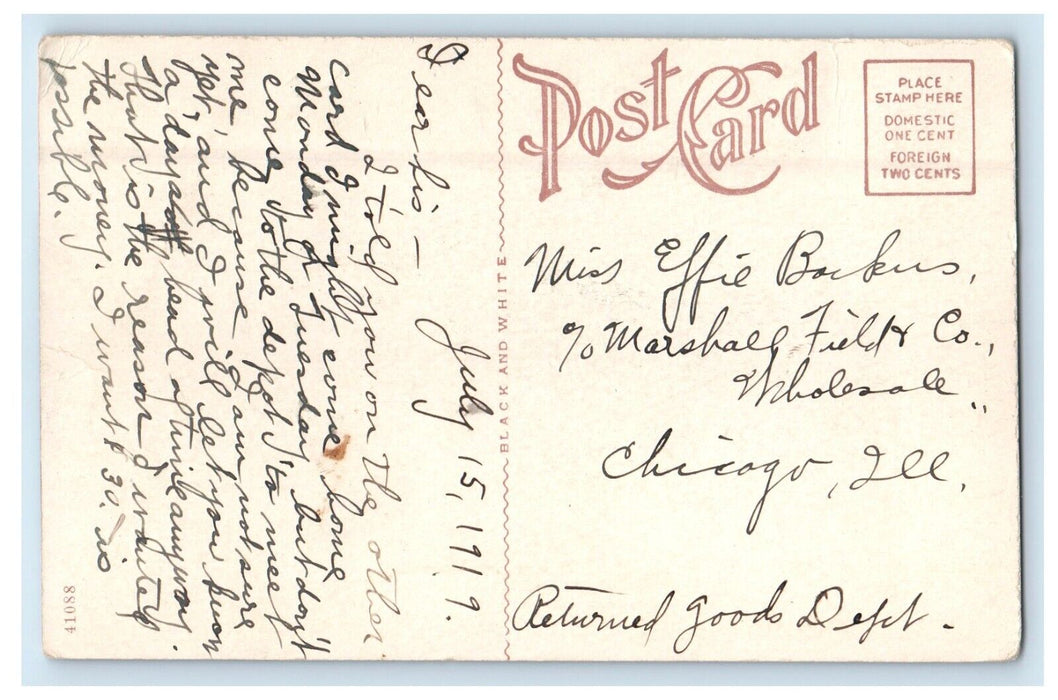 July 15, 1919.
Dear Sis —
I told you on the other
card I might come home
Monday or Tuesday but don't
come to the depot to meet
me, because I am not sure
yet, and I will let you know
a day ahead of time anyway.
That is the reason I wanted
the money. I want $30. is
possible.
41088
BLACK AND WHITE
Post Card
PLACE
STAMP HERE
DOMESTIC
ONE CENT
FOREIGN
TWO CENTS
Miss Effie Backus,
c/o Marshall Field & Co.,
Wholesale,
Chicago, Ill.
Returned Goods Dept.